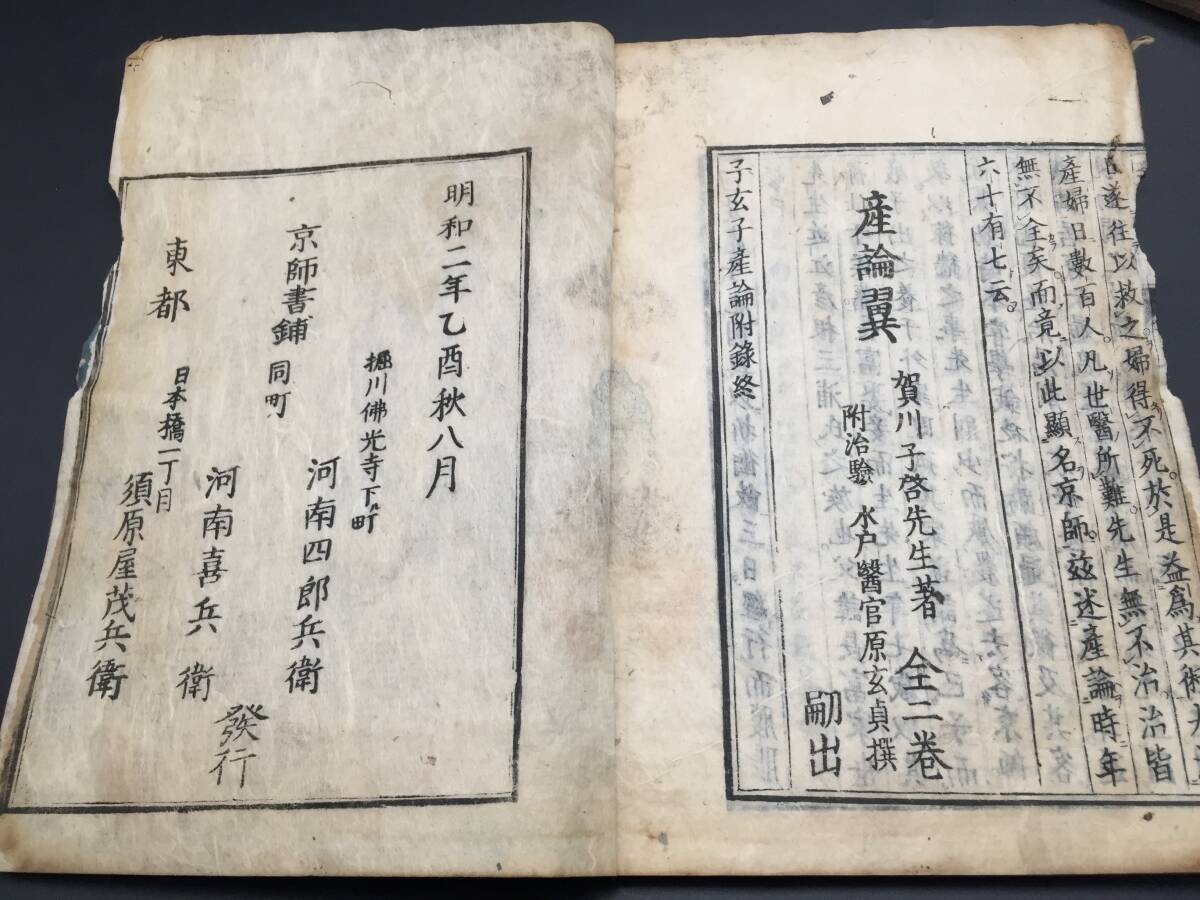 日遂往以救之婦得不死於是益為其術
產婦日數百人凡世醫所難先生無不治治皆
無不全矣而竟以此顯名京師玆述產論時年
六十有七云
產論翼 賀川子啓先生著 全二卷
附治驗 水戶醫官原玄貞撰 嗣出
子玄子產論附錄終
明和二年乙酉秋八月
堀川佛光寺下ル町
京師書鋪 河南四郎兵衛
同町 河南喜兵衛
東都 日本橋一丁目 須原屋茂兵衛
發行